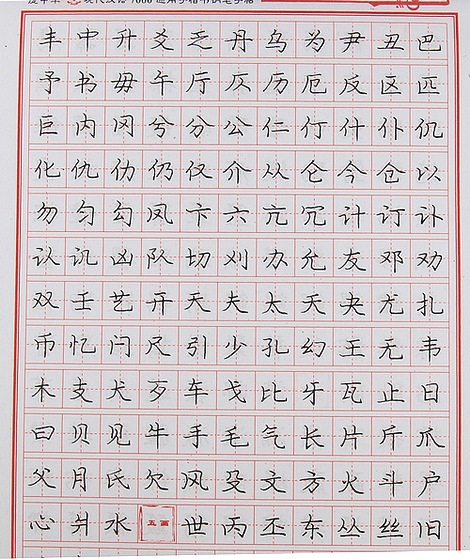 现代汉语7000通用字楷书钢笔字帖
丰中升爻乏丹乌为尹丑巴
予书毋午厅仄历厄反区匹
巨内冈兮分公仁仃什仆仉
化仇仂仍仅介从仑今仓以
勿匀勾凤卞六亢冗计订讣
认讥凶队切刈办允友邓劝
双壬艺开天夫太夭央尤扎
币忆闩尺引少孔幻王无韦
木支犬歹车戈比牙瓦止日
曰贝见牛手毛气长片斤爪
父月氏欠风殳文方火斗户
心爿水五画世丙丕东丛丝旧